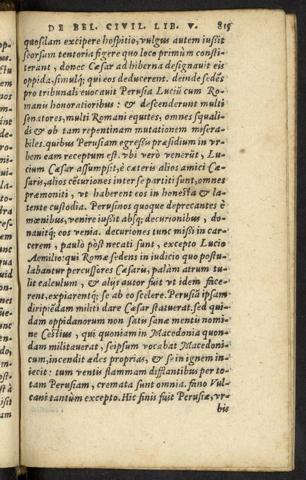 DE BEL. CIVIL. LIB. V. 815
quosdam excipere hospitio, vulgus autem iussit
seorsam tentoria figere quo loco primùm consti-
terant, donec Cæsar ad hiberna designauit eis
oppida, simulq; qui eos deducerent. deinde sedẽs
pro tribunali euocauit Perusia Luciũ cum Ro-
manis honoratioribus: & descenderunt multi
senatores, multi Romani equites, omnes squali-
di & ob tam repentinam mutationem misera-
biles. quibus Perusiam egressis præsidium in vr-
bem eam receptum est. vbi verò venerũt, Lu-
cium Cæsar assumpsit, è cæteris alios amici Cæ-
saris, alios cẽturiones inter se partiti sunt, omnes
præmoniti, vt haberent eos in honesta & la-
tente custodia. Perusinos quoque deprecantes è
mœnibus, venire iussit absq; decurionibus, do-
nauitq; eos venia. decuriones tunc missi in car-
cerem, paulò pòst necati sunt, excepto Lucio
Aemilio: qui Romæ sedens in iudicio quo postu-
labantur percussores Cæsaris, palàm atrum tu-
lit calculum, & aliis autor fuit vt idem face-
rent, expiarentq; se ab eo scelere. Perusiã ipsam
diripiẽdam militi dare Cæsar statuerat. sed qui-
dam oppidanorum non satis sanæ mentis nomi-
ne Cestius, qui quoniam in Macedonia quon-
dam militauerat, seipsum vocabat Macedoni-
cum, incendit ædes proprias, & se in ignem in-
iecit: tum ventis flammam disflantibus per to-
tam Perusiam, cremata sunt omnia. fano Vul-
cani tantùm excepto. Hic finis fuit Perusiæ, vr-
bis